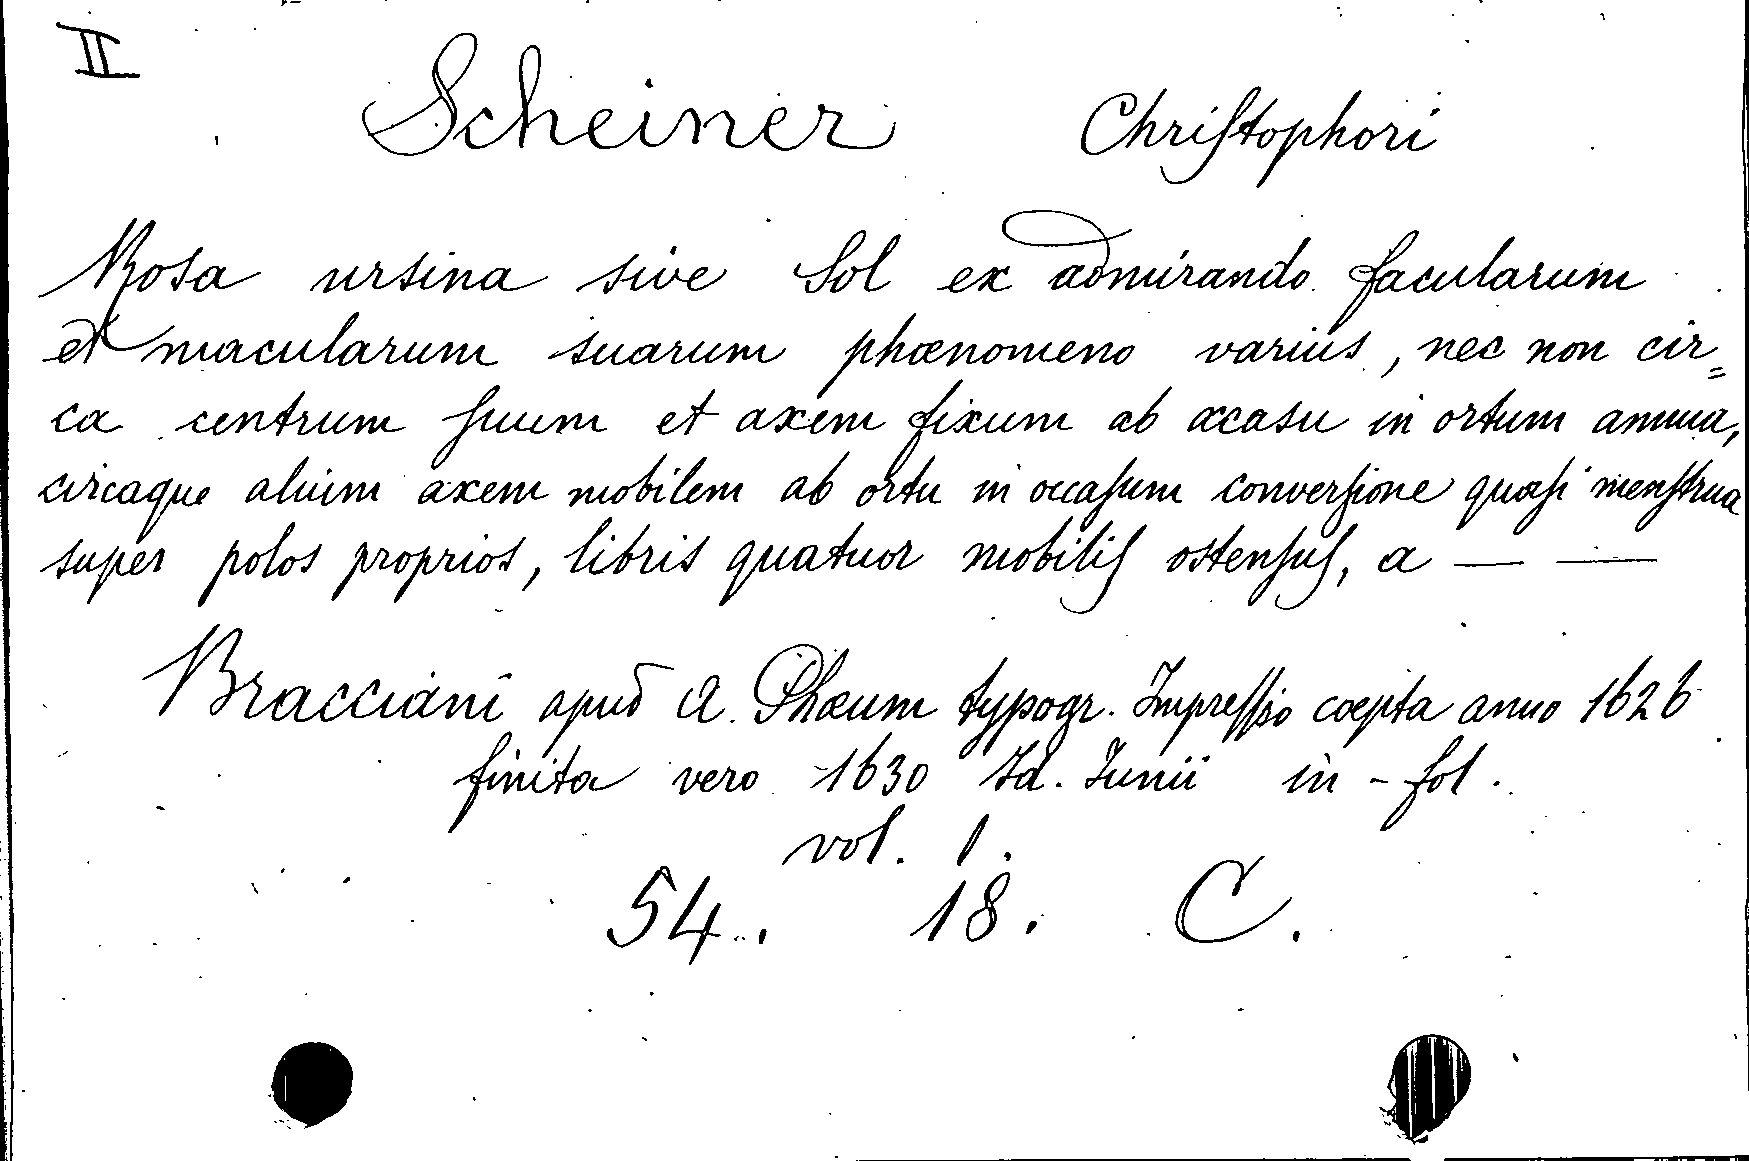 II
Scheiner Christophori
Rosa ursina sive Sol ex admirando facularum
et macularum suarum phœnomeno varius, nec non cir=
ca centrum suum et axem fixum ab occasu in ortum annua,
circaque alium axem mobilem ab ortu in occasum conversione quasi menstrua
super polos proprios, libris quatuor mobilis ostensus, a — —
Bracciani apud A. Phœum typogr. Impressio cœpta anno 1626
finita vero 1630 Id. Iunii in-fol.
vol. 1.
54. 18. C.